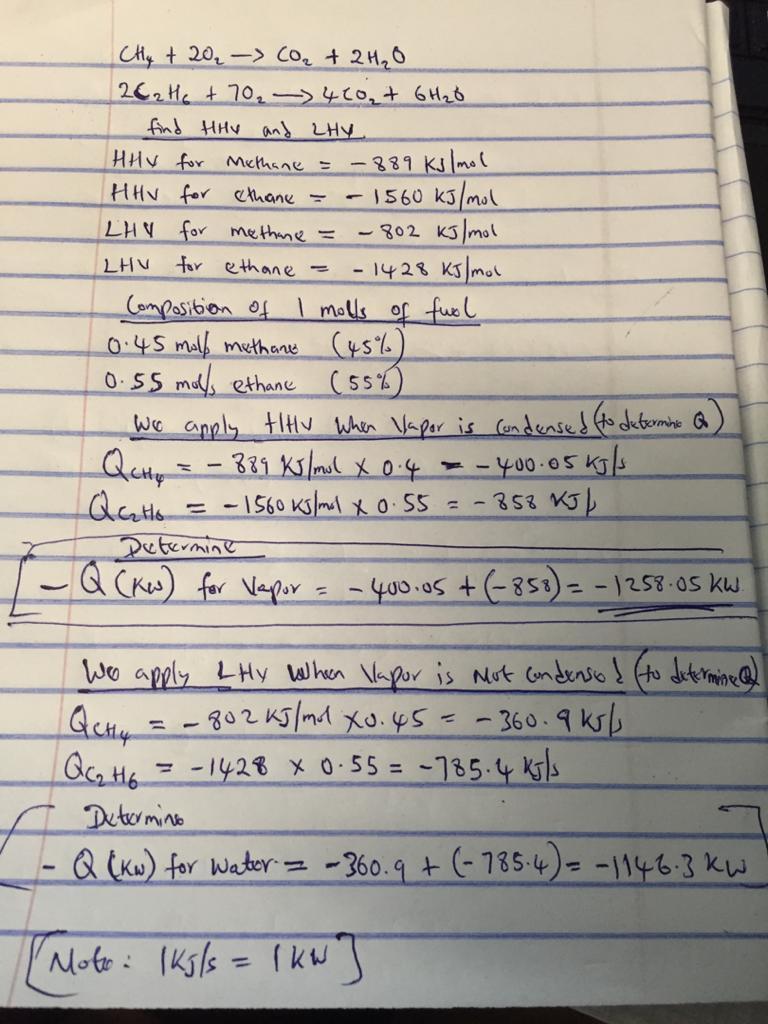 CH₄ + 2O₂ → CO₂ + 2H₂O
2C₂H₆ + 7O₂ → 4CO₂ + 6H₂O
find HHV and LHV
HHV for Methane = -889 KJ/mol
HHV for ethane = -1560 KJ/mol
LHV for methane = -802 KJ/mol
LHV for ethane = -1428 KJ/mol
Composition of 1 mol/s of fuel
0.45 mol/s methane (45%)
0.55 mol/s ethane (55%)
We apply HHV when Vapor is condensed (to determine Q)
QCH₄ = -889 KJ/mol × 0.4 = -400.05 KJ/s
QC₂H₆ = -1560 KJ/mol × 0.55 = -858 KJ/s
Determine
- Q (KW) for Vapor = -400.05 + (-858) = -1258.05 KW
We apply LHV when Vapor is Not condensed (to determine Q)
QCH₄ = -802 KJ/mol × 0.45 = -360.9 KJ/s
QC₂H₆ = -1428 × 0.55 = -785.4 KJ/s
Determine
- Q (KW) for water = -360.9 + (-785.4) = -1146.3 KW
[Note: 1KJ/s = 1KW]